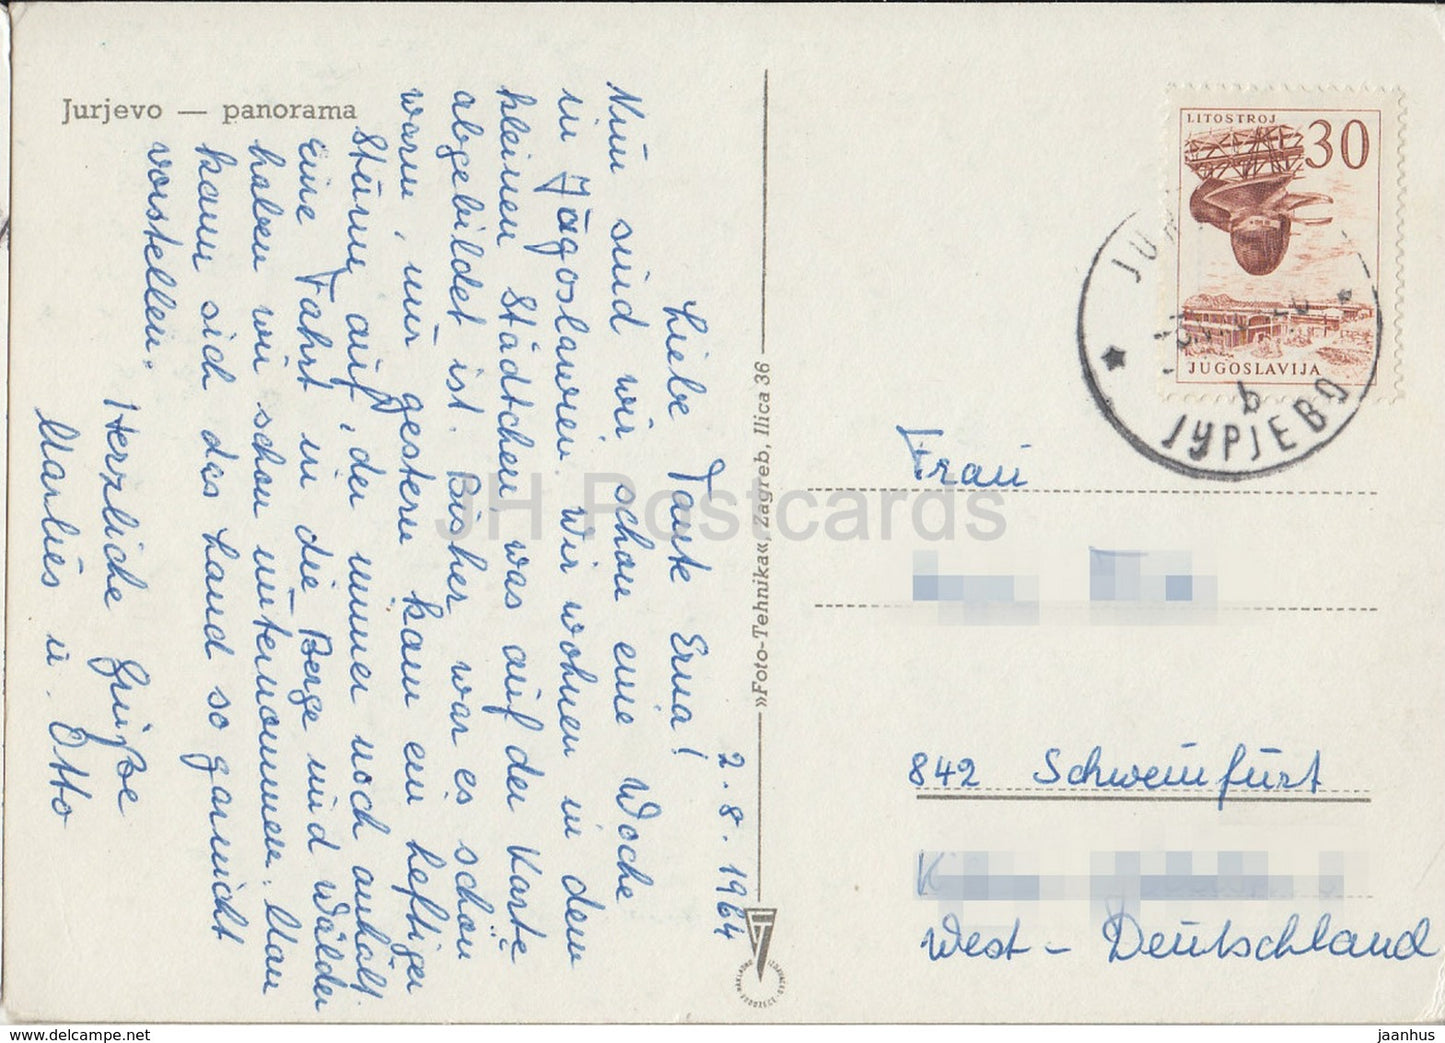 Jurjevo — panorama
2. 8. 1964
Liebe Tante Erna!
Nun sind wir schon eine Woche
in Jugoslawien. Wir wohnen in dem
kleinen Städtchen, was auf der Karte
abgebildet ist. Bisher war es schön
warm, nur gestern kam ein heftiger
Sturm auf, der immer noch anhält.
Eine Fahrt in die Berge und Wälder
haben wir schon unternommen. Man
kann sich das Land so garnicht
vorstellen.
Herzliche Grüße
Marlies u. Otto
»Foto-Tehnika«, Zagreb, Ilica 36
NAKLADNO IZDAVAČKO
LITOSTROJ
30
JUGOSLAVIJA
b
ЈУРЈЕВО
Frau
842 Schweinfurt
West-Deutschland
JH Postcards
jaanhus